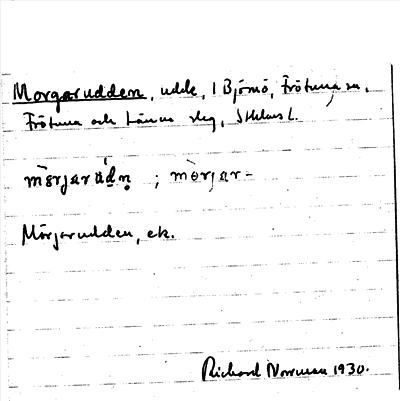 Morgarudden, udde, i Björnö, Frötuna sn,
Frötuna och Länna slg, Sthlms l.
mə̀rjarúdṇ ; mə̀rjar-
Mörjarudden, ek.
Richard Norrman 1930.